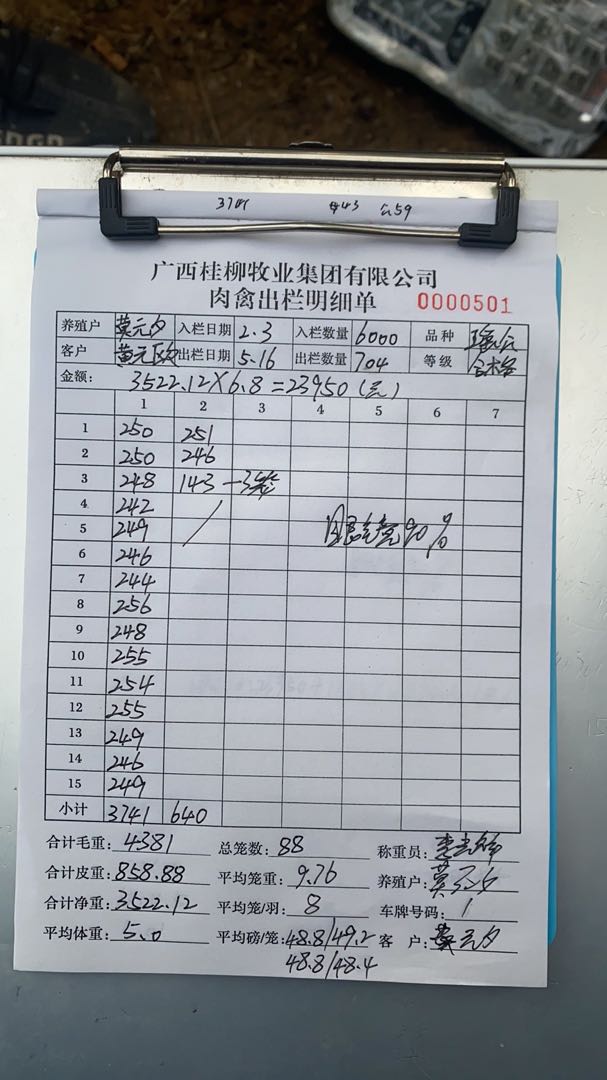 443
广西桂柳牧业集团有限公司
肉禽出栏明细单 0000501
养殖户 黄元 入栏日期 2.3 入栏数量 6000 品种
客户 黄元 出栏日期 5.16 出栏数量 704 等级 合格
金额: 3522.12×6.8=23950(元)
1 2 3 4 5 6 7
1 250 251
2 250 246
3 248 143
4 242
5 249 90%
6 246
7 244
8 256
9 248
10 255
11 254
12 255
13 249
14 246
15 249
小计 3741 640
合计毛重: 4381 总笼数: 88 称重员:
合计皮重: 858.88 平均笼重: 9.76 养殖户:
合计净重: 3522.12 平均笼/羽: 8 车牌号码: 1
平均体重: 5.0 平均磅/笼: 48.8/49.2 客 户:
48.8/48.4